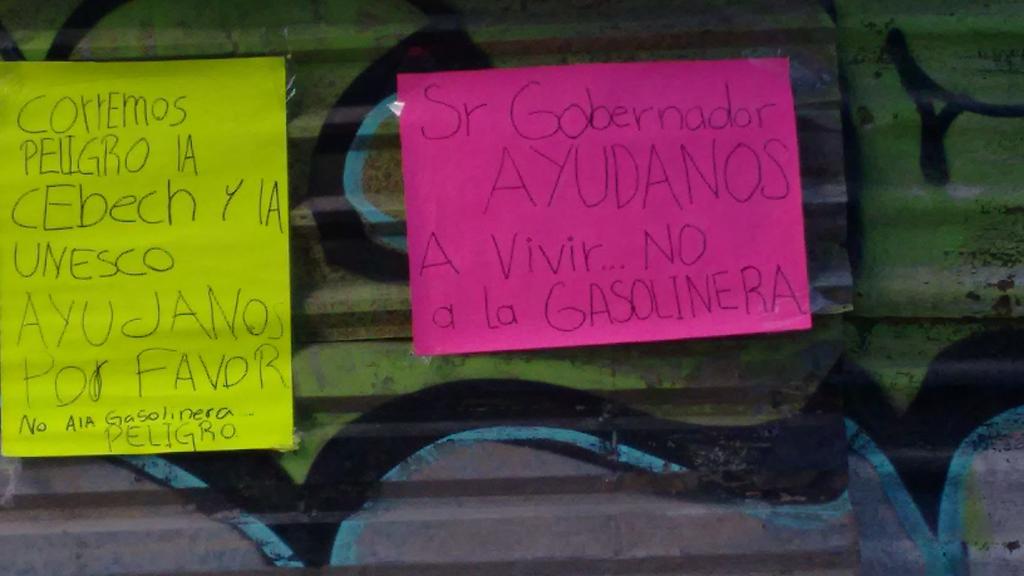 CorrEmos
PELIGRO lA
CEbech Y lA
UNESCO
AYUJANOS
Por FAVOR
No AlA Gasolinera...
PELIGRO
Sr Gobernador
AYUDANOS
A Vivir... NO
a la GASOLINERA